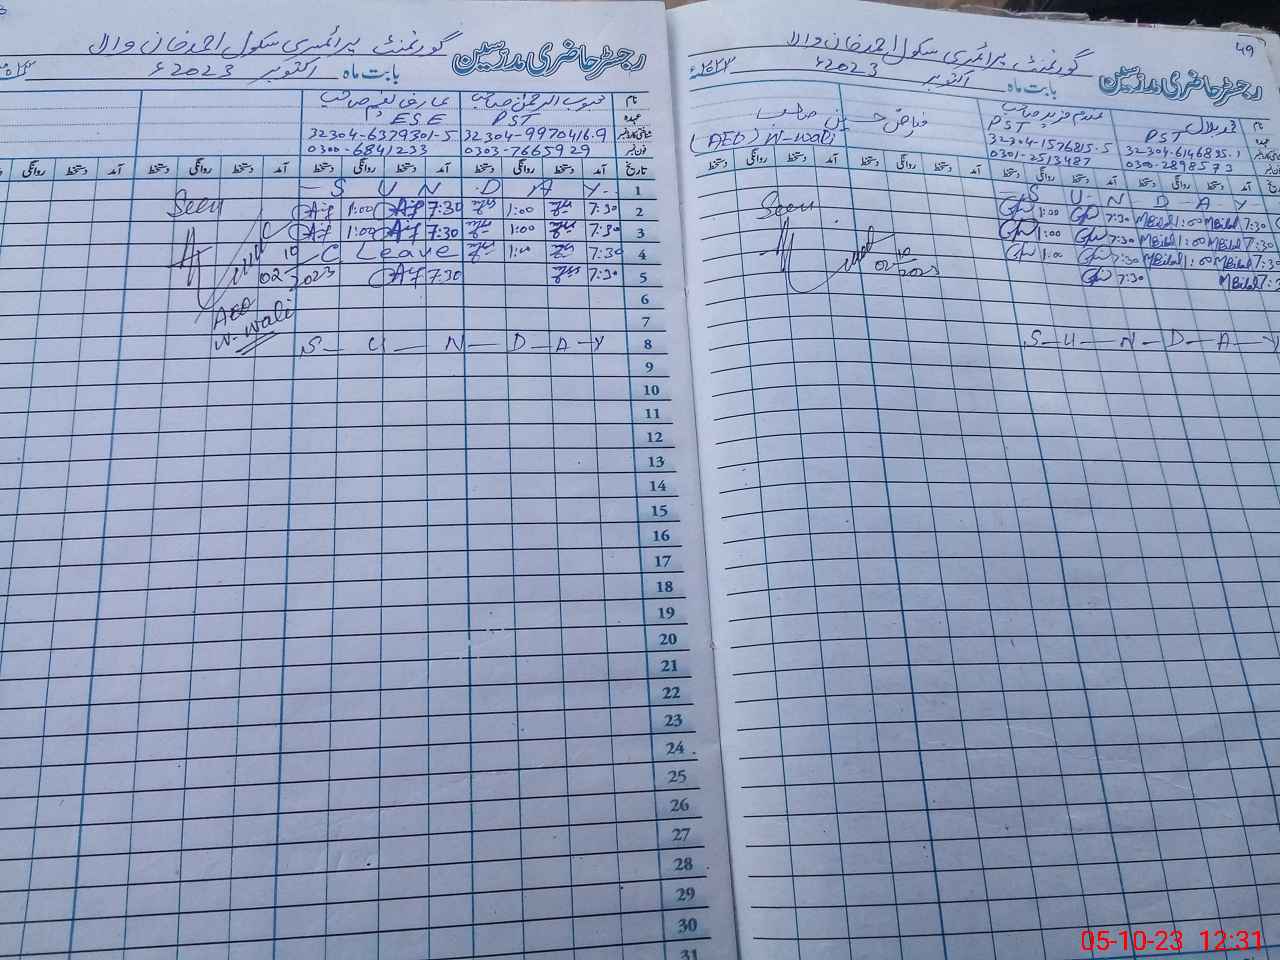 رجسٹر حاضری مدرسین گورنمنٹ پرائمری سکول احمد خان والا
بابت ماہ اکتوبر 2023ء
نام محبوب الرحمٰن صاحب
عہدہ PST ESE
32304-9970416-9 32304-6379301-5
0303-7665929 0300-6841233
تاریخ آمد دستخط روانگی دستخط آمد دستخط روانگی دستخط آمد دستخط روانگی دستخط آمد دستخط روانگی
1 S U N D A Y
2 7:30 1:00 7:30 1:00 Seen
3 7:30 1:00 7:30 1:00
4 7:30 1:00 C Leave
5 7:30 7:30
02 10 2023
AEO
W-Wali
6
7
8 S U N D A Y
9
10
11
12
13
14
15
16
17
18
19
20
21
22
23
24
25
26
27
28
29
30
31
49
رجسٹر حاضری مدرسین گورنمنٹ پرائمری سکول احمد خان والا
بابت ماہ اکتوبر 2023ء
نام محمد بلال PST
PST
32304-6146835-1 32304-1576815-5
0300-2898573 0301-2513487
فیاض حسین صاحب
(AEO) W-Wali
آمد دستخط روانگی دستخط آمد دستخط روانگی دستخط آمد دستخط روانگی دستخط آمد دستخط روانگی دستخط
S U N D A Y
7:30 MBilal 1:00 MBilal 7:30 1:00 Seen
7:30 MBilal 1:00 MBilal 7:30 1:00
7:30 MBilal 1:00 MBilal 7:30 1:00
MBilal 7:30
S U N D A Y
05-10-23 12:31